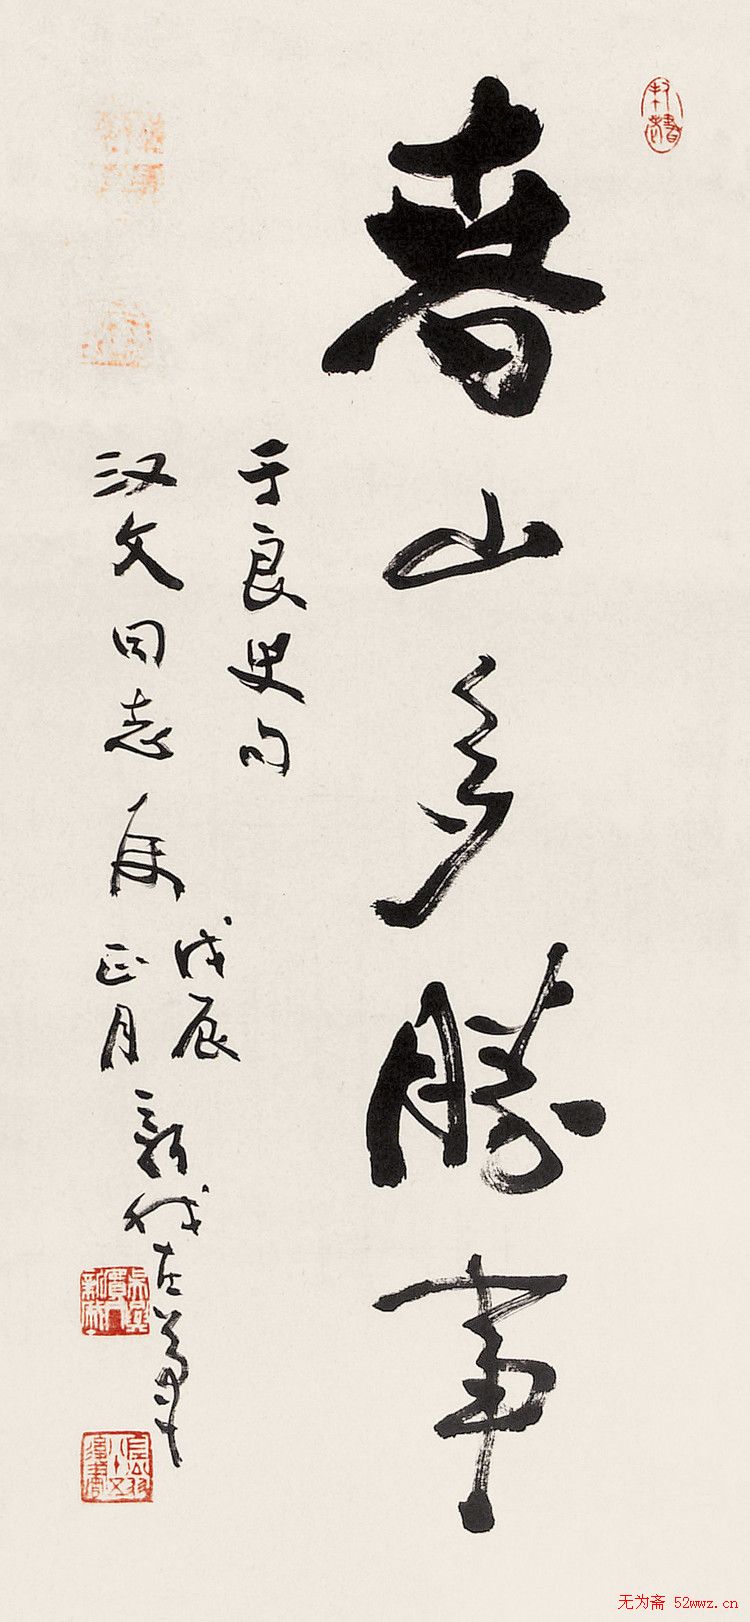 春山多勝事
于良史句
汉文同志
戊辰
正月
新我左笔
无为斋 52wwz.cn